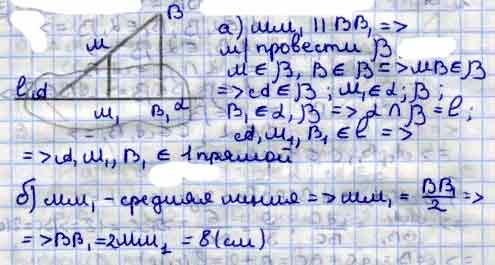 B
M
l A M₁ B₁ α
а) MM₁ || BB₁ =>
м/провести β
M ∈ β, B ∈ β => MB ∈ β
=> A ∈ β; M₁ ∈ α; β;
B₁ ∈ α, β => α ∩ β = l;
A, M₁, B₁ ∈ l =>
=> A, M₁, B₁ ∈ 1 прямой
б) MM₁ - средняя линия => MM₁ = BB₁/2 =>
=> BB₁ = 2MM₁ = 8 (см)